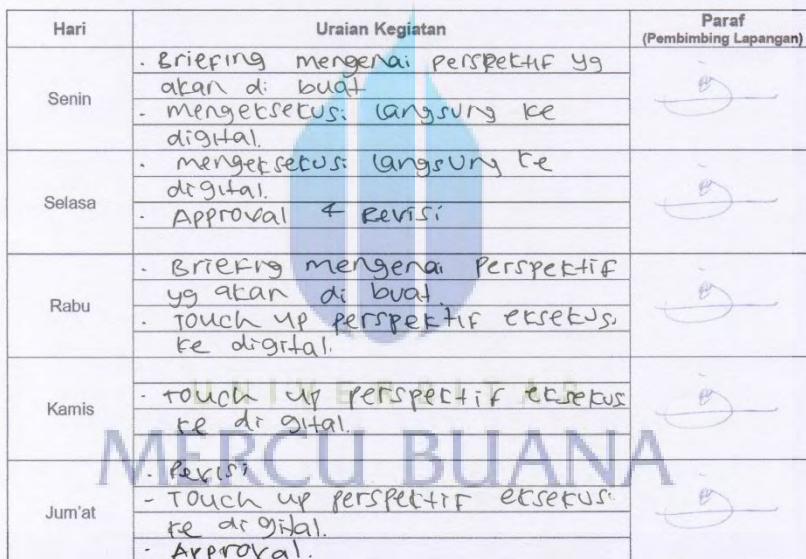 Hari Uraian Kegiatan Paraf
(Pembimbing Lapangan)
Senin
- Briefing mengenai perspektif yg
akan di buat
- mengeksekusi langsung ke
digital.
Selasa
- mengeksekusi langsung ke
digital.
- Approval & Revisi
Rabu
- Briefing mengenai Perspektif
yg akan di buat.
- Touch up perspektif eksekusi
ke digital.
Kamis
- touch up perspektif eksekusi
ke digital.
UNIVERSITAS
MERCU BUANA
Jum'at
- Revisi
- Touch up perspektif eksekusi
ke digital.
- Approval.